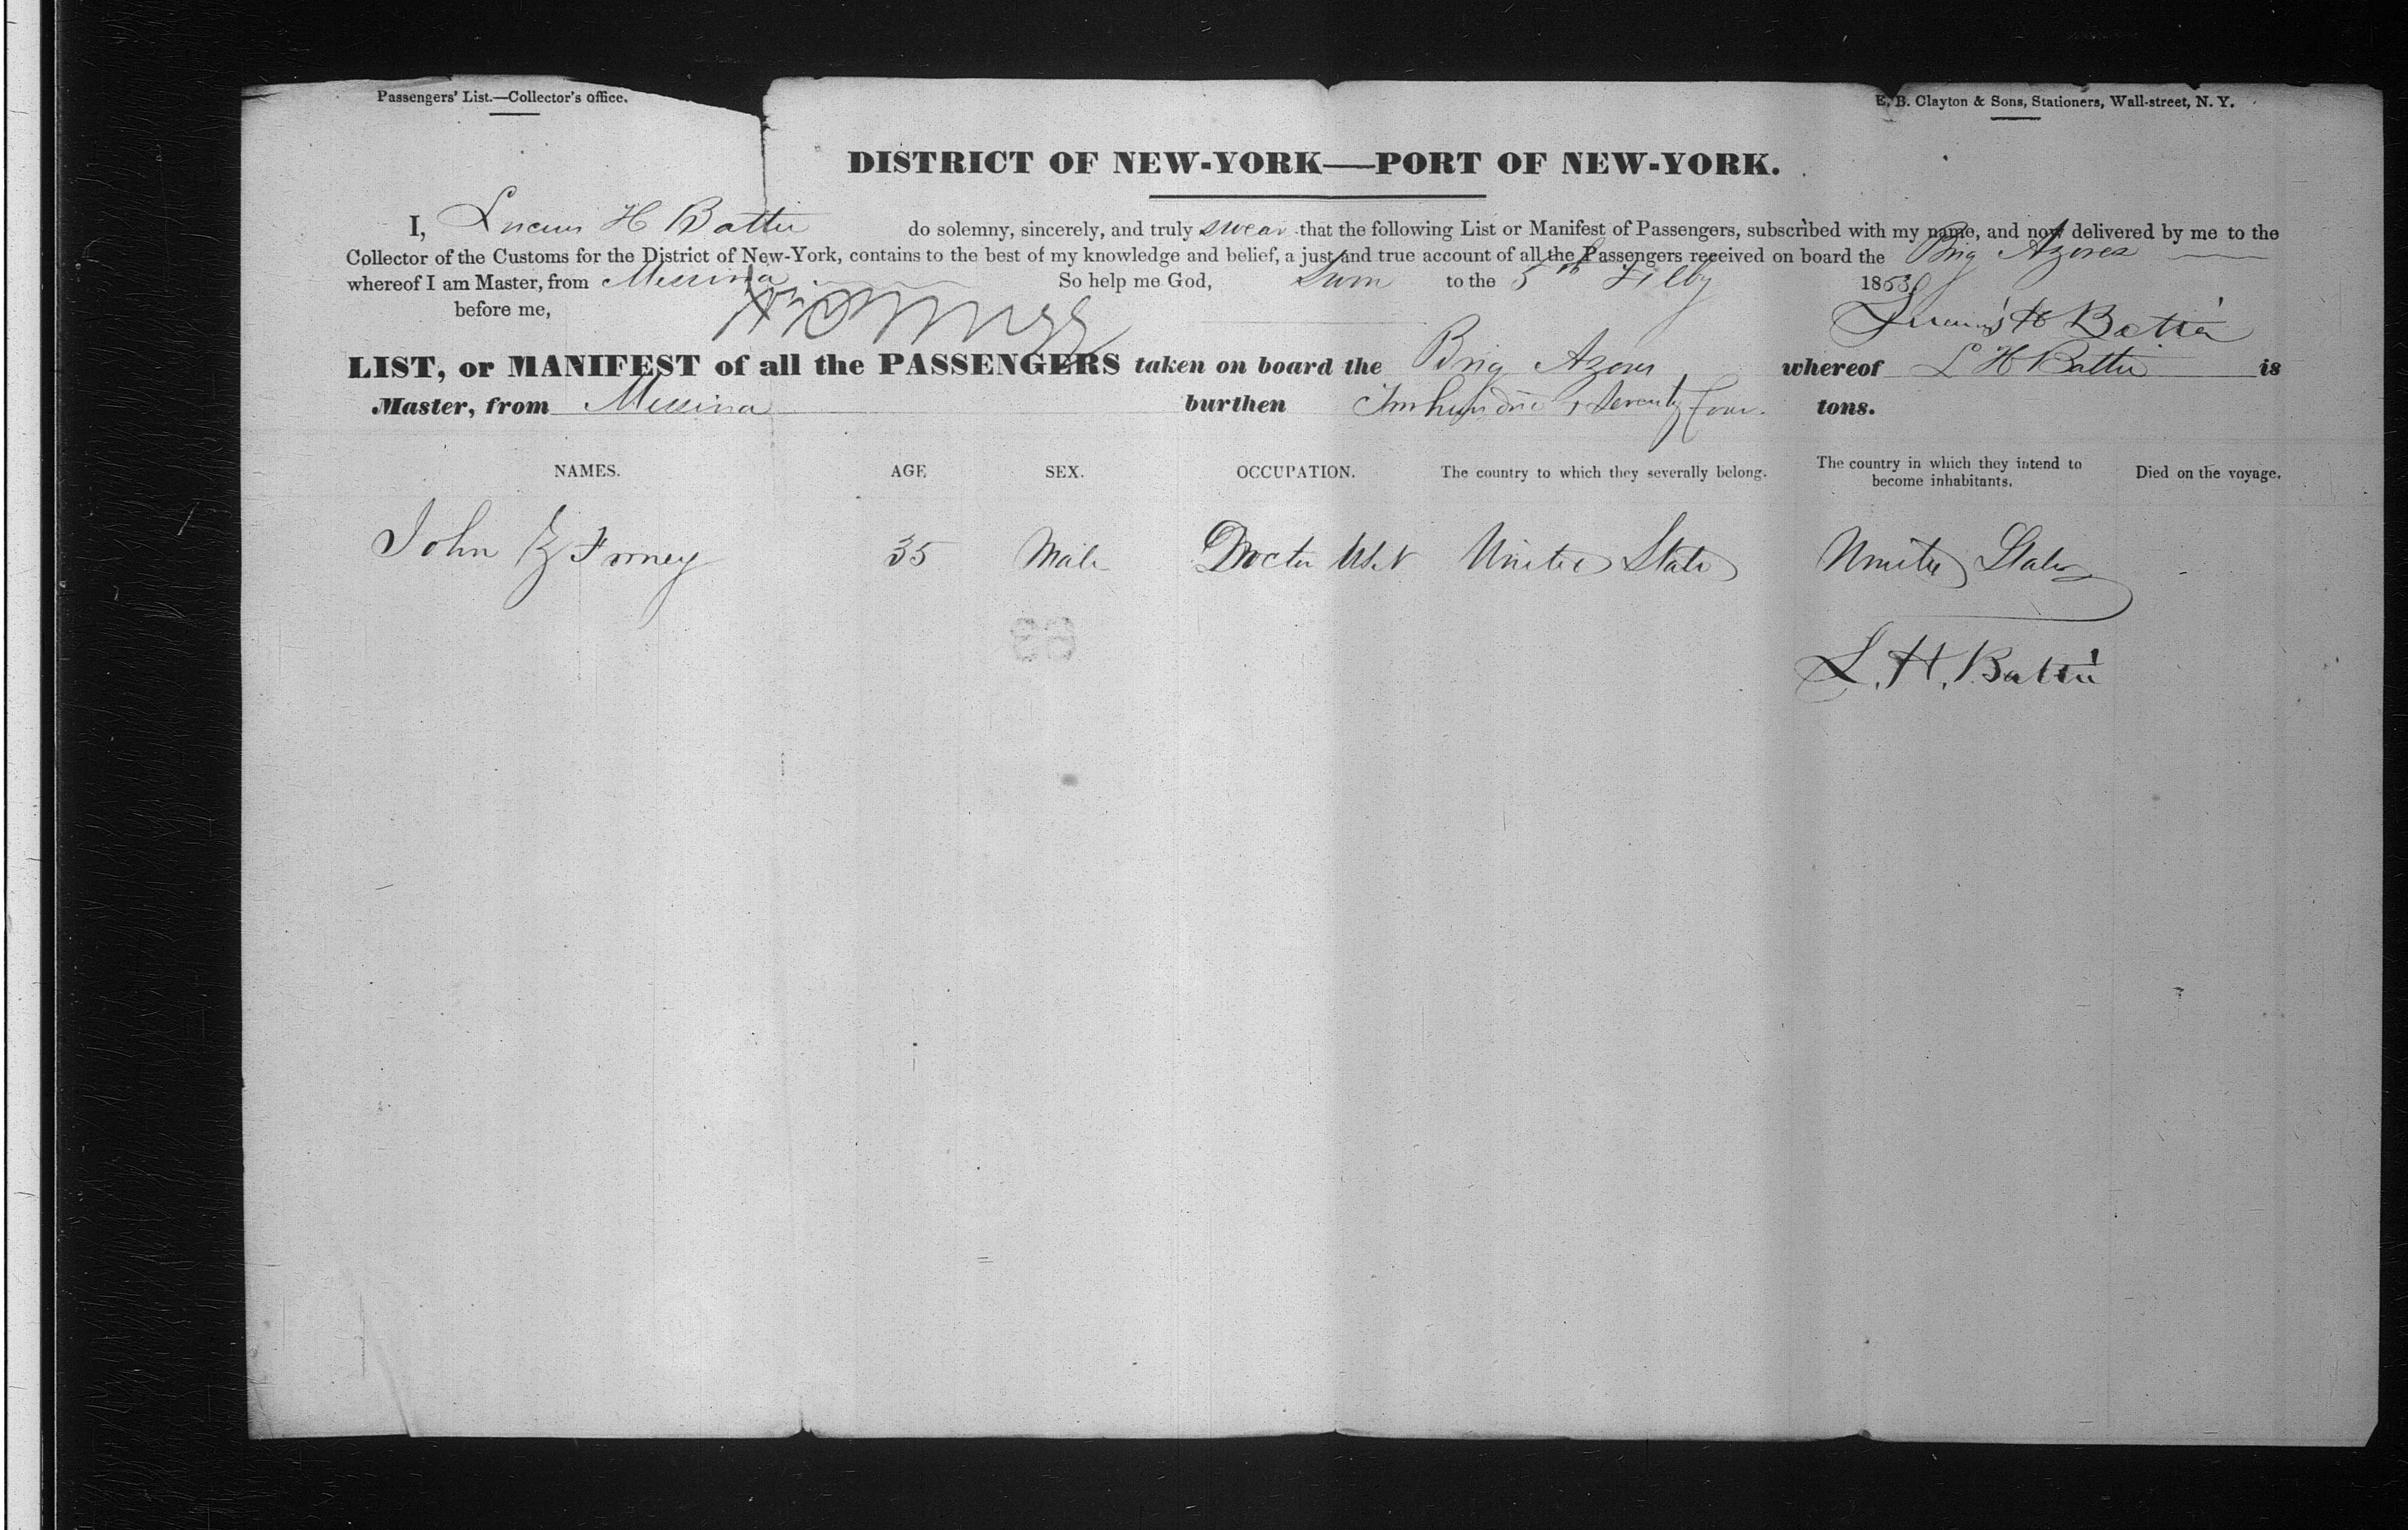 Passengers' List.—Collector's office.
E. B. Clayton & Sons, Stationers, Wall-street, N. Y.
DISTRICT OF NEW-YORK—PORT OF NEW-YORK.
I, Lucius H Battie do solemny, sincerely, and truly swear that the following List or Manifest of Passengers, subscribed with my name, and now delivered by me to the
Collector of the Customs for the District of New-York, contains to the best of my knowledge and belief, a just and true account of all the Passengers received on board the Brig Azores
whereof I am Master, from Messina So help me God, to the 5th 1853
before me, Lucius H Battie
LIST, or MANIFEST of all the PASSENGERS taken on board the Brig Azores whereof L H Battie is
Master, from Messina burthen Seventy four tons.
NAMES. AGE SEX. OCCUPATION. The country to which they severally belong. The country in which they intend to become inhabitants. Died on the voyage.
John Forney 35 Male Doctor U.S.N United States United States
L. H. Battie